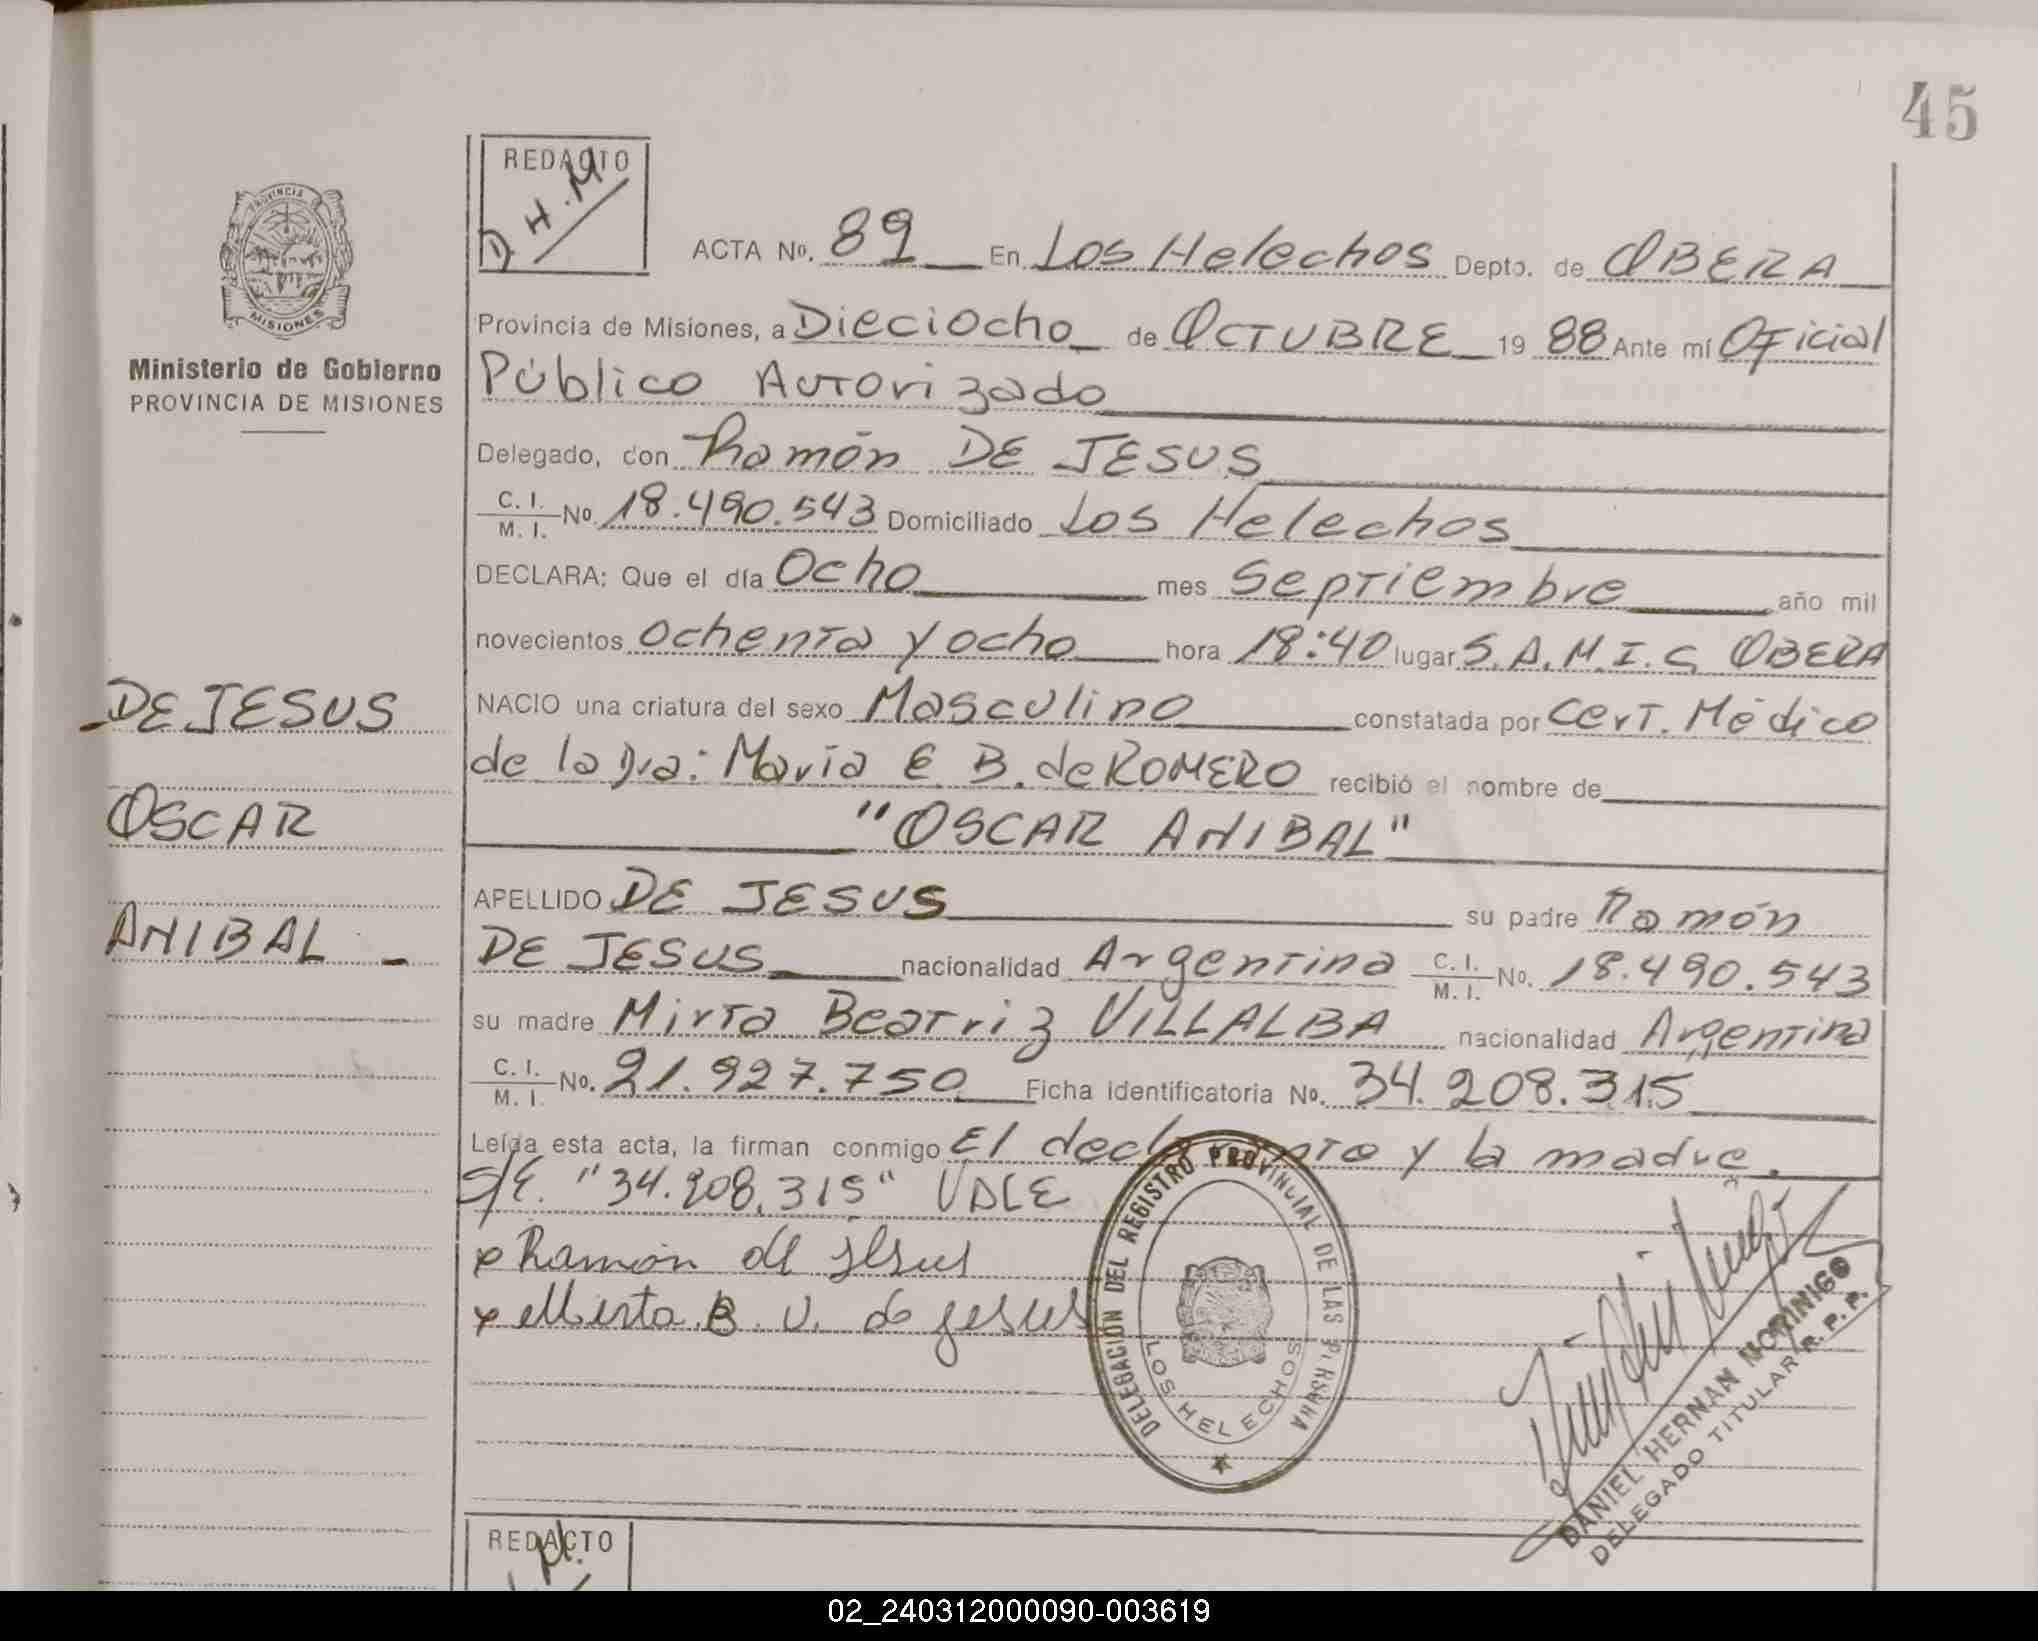 45
REDACTO
D.H.M
PROVINCIA
MISIONES
Ministerio de Gobierno
PROVINCIA DE MISIONES
ACTA Nº. 89 En Los Helechos Depto. de OBERA
Provincia de Misiones, a Dieciocho de OCTUBRE 19 88 Ante mí Oficial
Público Autorizado
Delegado, don Ramón DE JESUS
C. I.
M. I. Nº. 18.490.543 Domiciliado Los Helechos
DECLARA: Que el día Ocho mes Septiembre año mil
novecientos ochenta y ocho hora 18:40 lugar S.A.M.I.C. OBERA
DE JESUS
NACIO una criatura del sexo Masculino constatada por Cert. Médico
de la Dra: María E B. de ROMERO recibió el nombre de
OSCAR
"OSCAR ANIBAL"
APELLIDO DE JESUS su padre Ramón
ANIBAL -
DE JESUS nacionalidad Argentina C. I.
M. I. Nº. 18.490.543
su madre Mirta Beatriz VILLALBA nacionalidad Argentina
C. I.
M. I. Nº. 21.927.750 Ficha identificatoria Nº. 34.208.315
Leída esta acta, la firman conmigo El y la madre.
S/E. "34.208.315" VALE
x Ramón de Jesus
x Mirta B. V. de jesus
DELEGACIÓN DEL REGISTRO PROVINCIAL DE LAS PERSONAS
LOS HELECHOS
DANIEL HERNAN MORINIGO
DELEGADO TITULAR R. P. P.
REDACTO
02_240312000090-003619